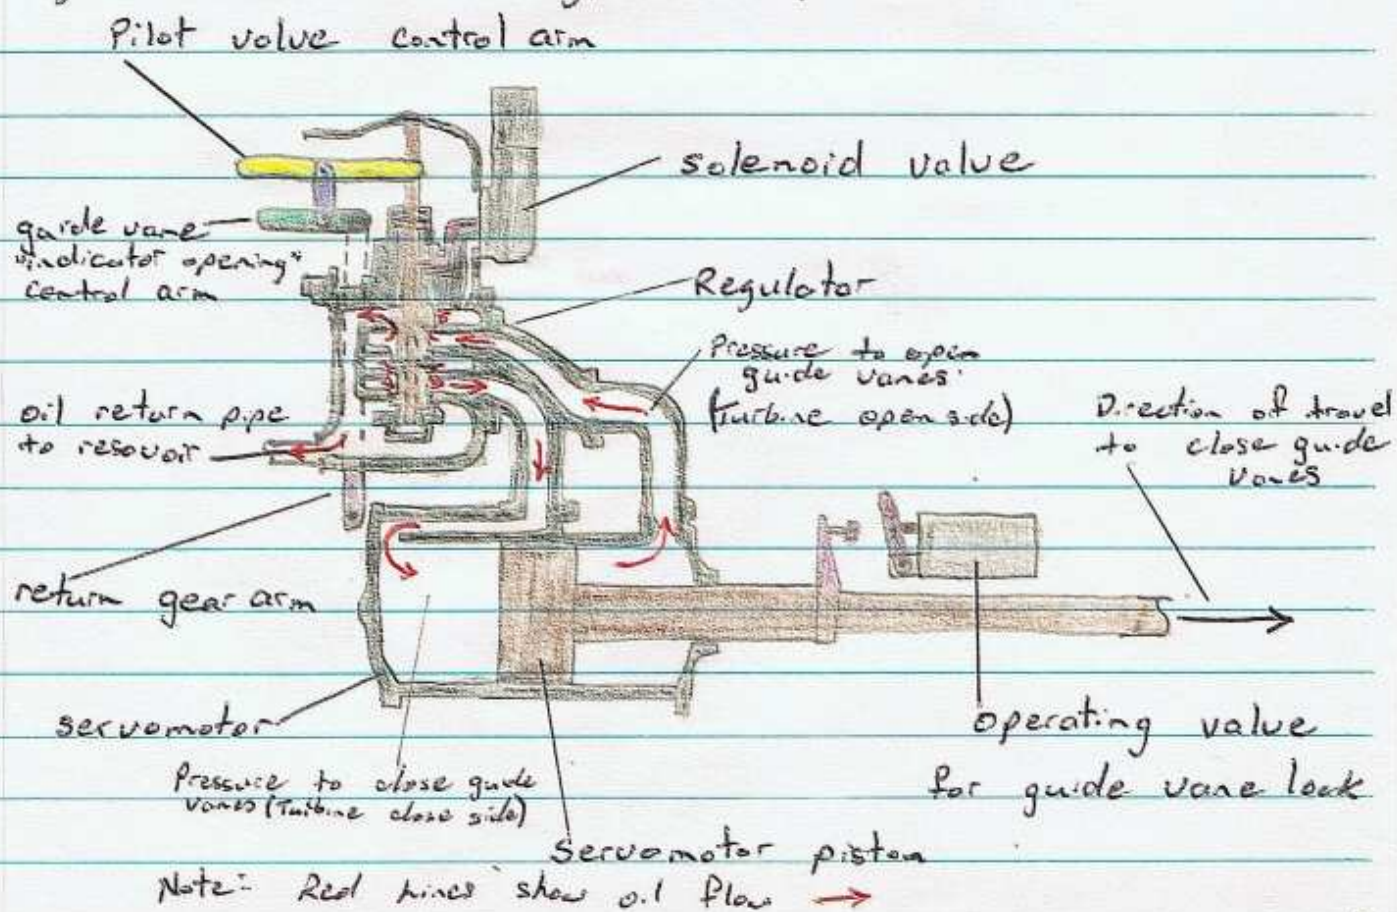 Pilot valve control arm
solenoid value
guide vane
"indicator opening"
control arm
Regulator
Pressure to open
guide vanes
(Turbine open side)
oil return pipe
to resovoir
Direction of travel
to close guide
vanes
return gear arm
servomotor
Pressure to close guide
vanes (Turbine close side)
operating value
for guide vane lock
servomotor piston
Note:- Red lines show oil flow